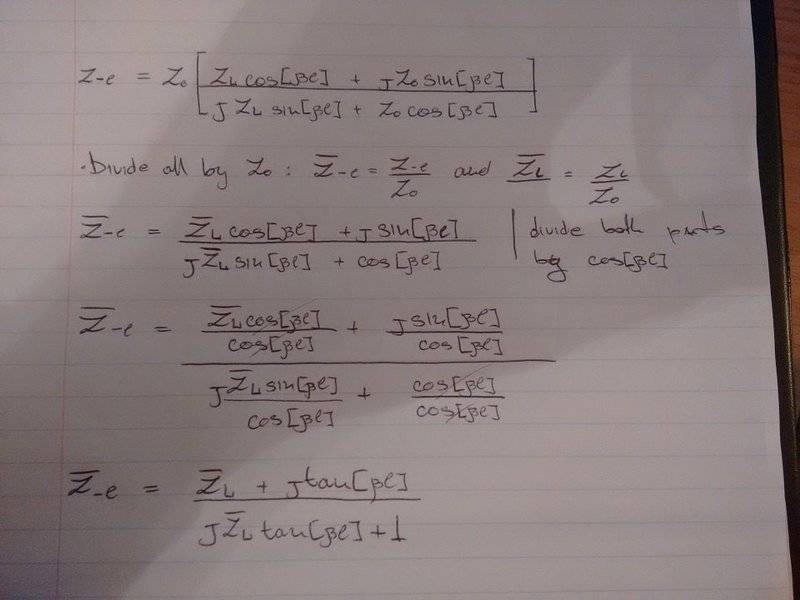 Z-e = Z₀ [ (Z_L cos[βe] + jZ₀ sin[βe]) / (jZ_L sin[βe] + Z₀ cos[βe]) ]
· Divide all by Z₀ : Z̅-e = Z-e / Z₀ and Z̅_L = Z_L / Z₀
Z̅-e = (Z̅_L cos[βe] + j sin[βe]) / (jZ̅_L sin[βe] + cos[βe]) | divide both parts by cos[βe]
Z̅-e = (Z̅_L cos[βe] / cos[βe] + j sin[βe] / cos[βe]) / (jZ̅_L sin[βe] / cos[βe] + cos[βe] / cos[βe])
Z̅-e = (Z̅_L + j tan[βe]) / (jZ̅_L tan[βe] + 1)